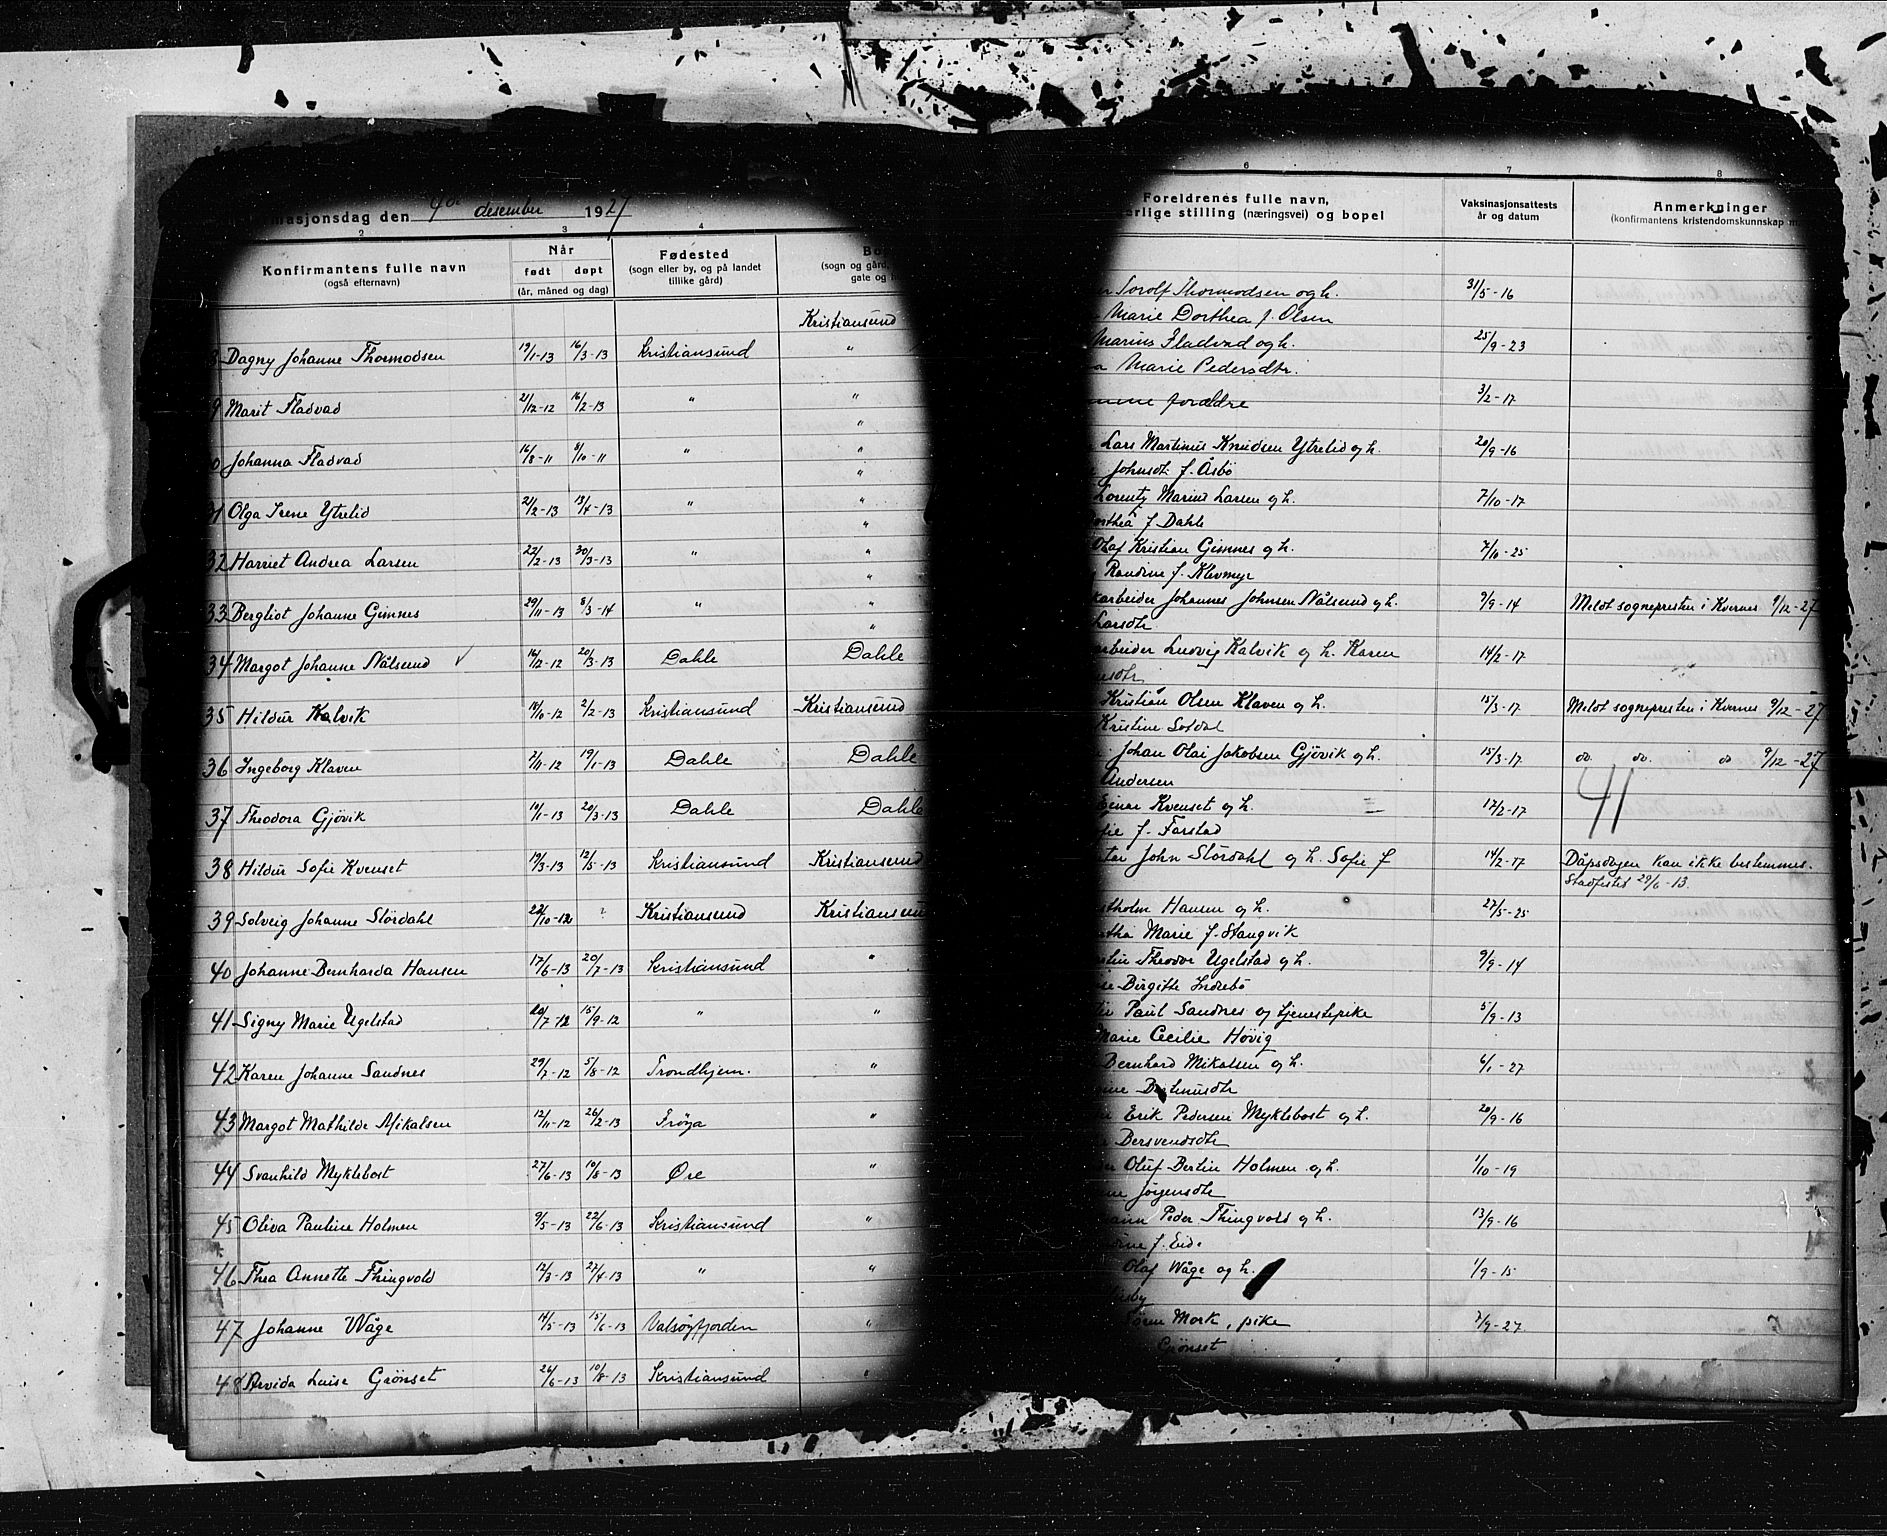 masjonsdag den 4de desember 1927
2 3 4
Konfirmantens fulle navn
(også efternavn)
Når
født døpt
(år, måned og dag)
Fødested
(sogn eller by, og på landet
tillike gård)
(sogn og gård,
gate og
Kristiansund
Dagny Johanne Thormodsen 19/1-13 16/3-13 Kristiansund "
9 Marit Fladvad 21/12-12 16/2-13 " "
"
0 Johanna Fladvad 16/8-11 8/10-11 " "
"
31 Olga Irene Ytrelid 21/2-13 13/4-13 " "
"
32 Harriet Andrea Larsen 22/2-13 30/3-13 " "
"
33 Bergliot Johanne Gimnes 29/11-13 8/3-14 " "
"
34 Margot Johanne Nålsund 16/12-12 20/3-13 Dahle Dahle
35 Hildur Kalvik 14/10-12 2/2-13 Kristiansund Kristiansund
36 Ingeborg Klaven 2/11-12 19/1-13 Dahle Dahle
37 Theodora Gjövik 10/1-13 20/3-13 Dahle Dahle
38 Hildur Sofie Kvenset 19/3-13 12/5-13 Kristiansund Kristiansund
39 Solveig Johanne Stördahl 22/10-12 ? Kristiansund Kristiansun
40 Johanne Bernharda Hansen 17/6-13 20/7-13 Kristiansund "
41 Signy Marie Ugelstad 20/7-12 15/9-12 " "
42 Karen Johanne Sandnes 29/7-12 5/8-12 Trondhjem. "
43 Margot Mathilde Mikalsen 12/11-12 26/2-13 Fröya "
44 Svanhild Myklebost 27/6-13 10/8-13 Øre "
45 Oliva Pauline Holmen 9/5-13 22/6-13 Kristiansund "
46 Thea Annette Thingvold 12/3-13 27/4-13 " "
47 Johanne Wåge 14/5-13 15/6-13 Valsöyfjorden "
48 Arvida Luise Grönset 26/6-13 10/8-13 Kristiansund "
6 7 8
Foreldrenes fulle navn,
rlige stilling (næringsvei) og bopel
Vaksinasjonsattests
år og datum
Anmerkninger
(konfirmantens kristendomskunnskap m
Torolf Thormodsen og h. 31/5-16
Marie Dorthea f. Olsen
Marius Fladvad og h. 25/9-23
Marie Pedersdtr.
forældre 3/2-17
Lars Martinus Knudsen Ytrelid og h. 20/9-16
Johnsdt. f. Åsbö
Lorentz Marius Larsen og h. 7/10-17
f Dahle
Olaf Kristian Gimnes og h. 7/10-25
Randine f. Klevmyr
arbeider Johannes Johnsen Nålsund og h. 9/9-14 Meldt sognepresten i Kvernes 9/12-27
Larsdtr
arbeider Ludvig Kalvik og h. Karen 14/2-17
Kristian Olsen Klaven og h. 15/3-17 Meldt sognepresten i Kvernes 9/12-27
Kristine
Johan Olai Jakobsen Gjövik og h. 15/3-17 do. do. do 9/12-27
Andersen
41
Einar Kvenset og h. 17/2-17
fie f. Farstad
John Stördahl og h. Sofie f 14/2-17 Dåpsdagen kan ikke bestemmes.
Stadfestet 29/6-13.
Hansen og h. 27/5-25
Marie f. Stangvik
Theodor Ugelstad og h. 9/9-14
Birgitte Indrebö
Paul Sandnes og tjenestepike 5/9-13
Marie Cecilie Hövig
Bernhard Mikalsen og h. 6/1-27
Erik Pedersen Myklebost og h. 20/9-16
Bersvendsdtr
Oluf Bertin Holmen og h. 1/10-19
Jörgensdtr
Peder Thingvold og h. 13/9-16
f. Eide
Olaf Wåge og h. 1/9-15
Sören Mork, pike 7/9-27
Grönset